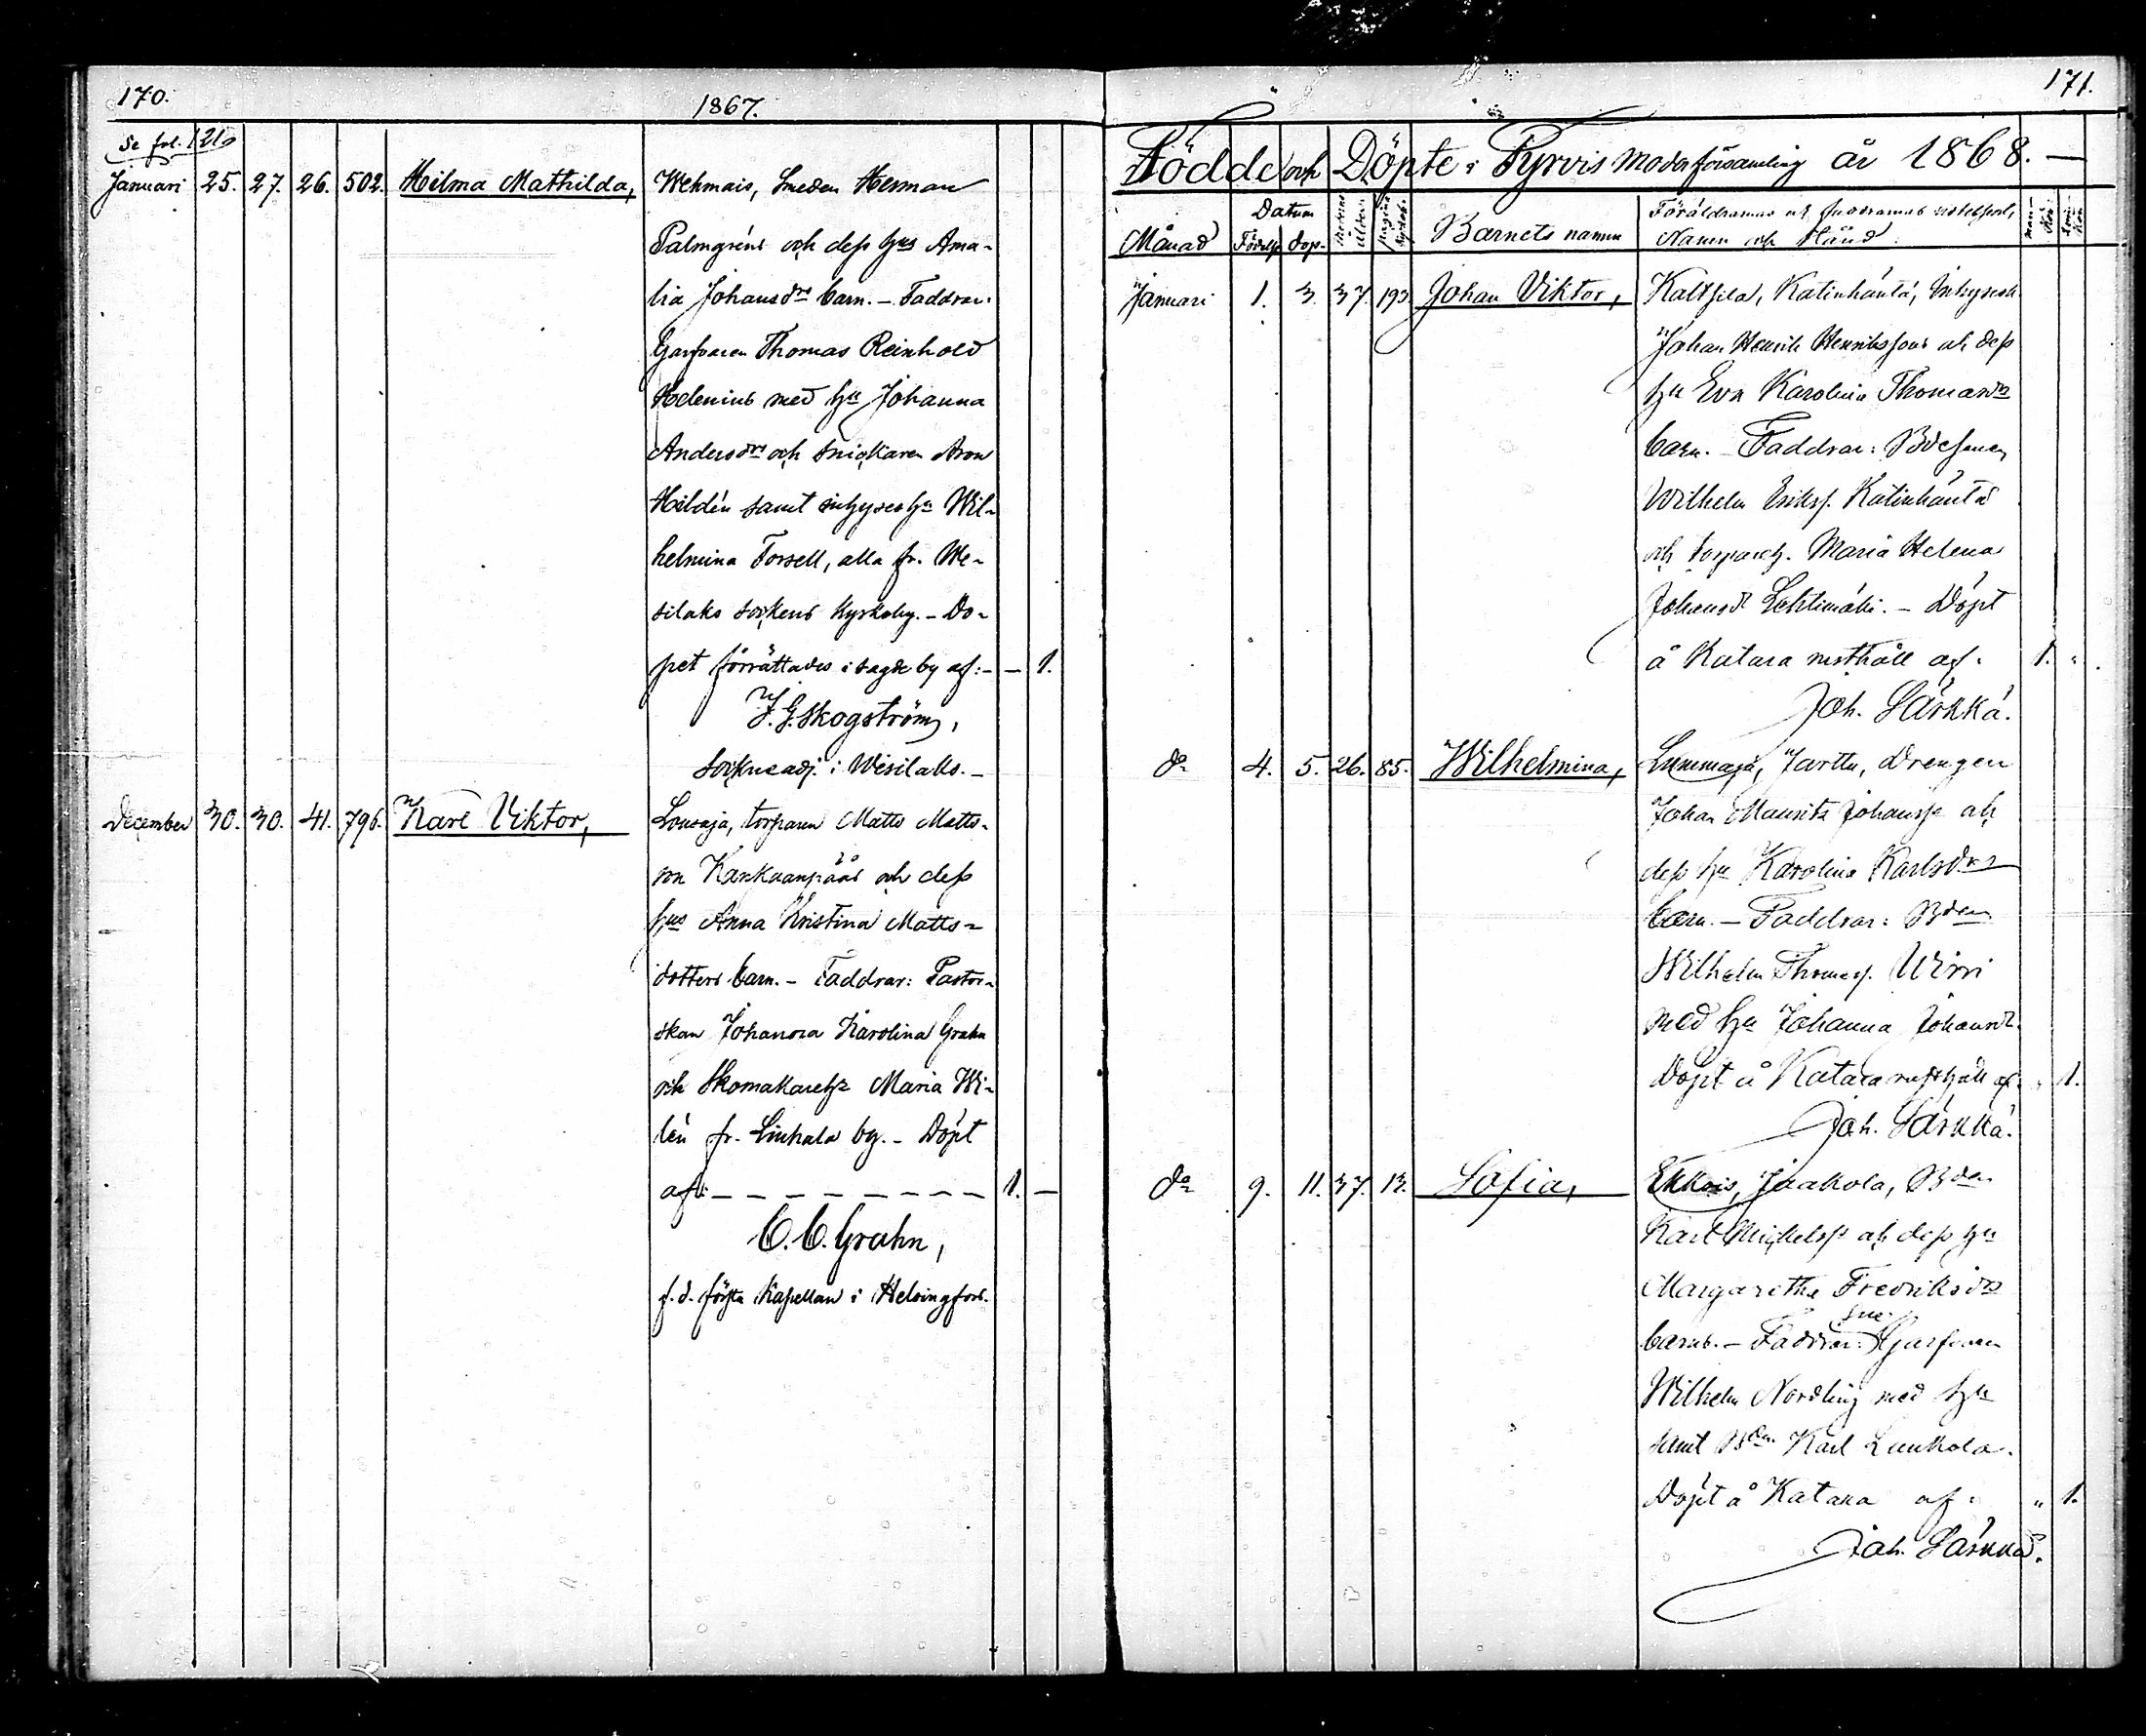 170.
1867.
Se fol. 121.
Januari 25. 27. 26. 502. Hilma Mathilda, Wehmais, Smeden Herman
Palmgréns och dess hus Ama-
lia Johansdrs barn. - Faddrar:
Garfvaren Thomas Reinhold
Helenius med hu Johanna
Andersdrs och snickaren Aron
Hildén samt inhyses hu Wil-
helmina Forsell, alla fr. We-
silaks sockens Kyrkoby. - Do-
pet förrättades i sagde by af: - - 1.
J. G. Skogström,
Sockneadj. i Wesilaks. -
December 30. 30. 41. 796. Karl Viktor, Lousaja, torparen Matts Matts-
son Kankaanpääs och dess
hus Anna Kristina Matts-
dotters barn. - Faddrar: Pastor-
skan Johanna Karolina Grahn
och Skomakareh. Maria Wi-
lén fr. Liuhala by. - Döpt
af: - - - - - - - - 1. -
C. C. Grahn,
f. d. första Kapellan i Helsingfors.
171.
Födde och Döpte i Tyrvis Moderförsamling år 1868. -
Månad Datum Födelse dop. Moderns ålder Barnets namn Föräldrarnas och Faddrarnas
Namn och Stånd.
Januari 1. 3. 37. 193. Johan Viktor, Kaltsila, Katinhäntä, Inhysesh.
Johan Henrik Henrikssons och dess
hu Eva Karolina Thomasdr
barn. - Faddrar:
Wilhelm Erikss. Katinhäntä
och torpareh. Maria Helena
Johansdr Lehtimäki. - Döpt
å Katara rusthåll af: 1. "
Joh. Särkkä.
do 4. 5. 26. 85. Wilhelmina, Lummaja, Jarttu, Drengen
Johan Mauritz Johanss. och
dess hu Karolina Karlsdrs
barn. - Faddrar: Bden
Wilhelm Thomass. Wirri
med hu Johanna Johansdr.
Döpt å Katara rusthåll af: " 1.
Joh. Särkkä.
do 9. 11. 37. 13. Sofia, Ekkois, Jaakola, Bden
Karl Michelss. och dess hu
Margaretha Fredriksdrs
barn. - Faddrar: Garfvaren
Wilhelm Nordling med hu
samt Bden Karl Laukola.
Döpt å Katara af: " 1.
Joh. Särkkä.